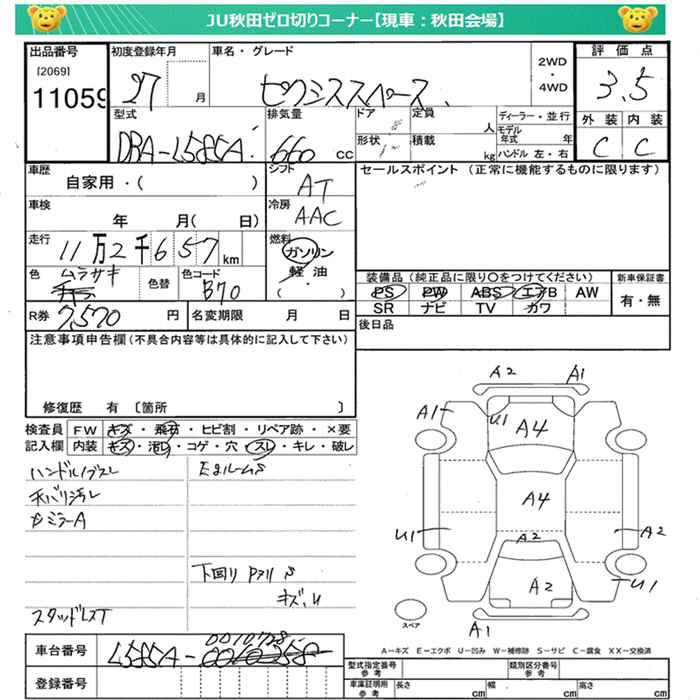 JU秋田ゼロ切りコーナー【現車：秋田会場】
出品番号 初度登録年月 車名・グレード 評価点
[2069] 2WD
11059 27 月 ピクシススペース ・ 3.5
4WD
型式 排気量 ドア 定員 人 ディーラー・並行 外装 内装
モデル年式 年
DBA-L585A 660 cc 形状 積載 kg ハンドル 左・右 C C
車歴 シフト セールスポイント (正常に機能するものに限ります)
自家用・( ) AT
車検 冷房
年 月( 日) AAC
走行 燃料
11万2千657km ガソリン
軽油
( ・ )
色 ムラサキ 色替 色コード B70
装備品(純正品に限り○をつけてください) 新車保証書
PS PW ABS エアB AW 有・無
SR ナビ TV カワ
R券 7,570 円 名変期限 月 日
後日品
注意事項申告欄(不具合内容等は具体的に記入して下さい)
修復歴 有 〔箇所 〕
検査員 FW キズ・飛石・ヒビ割・リペア跡・×要
記入欄 内装 キズ・汚レ・コゲ・穴・スレ・キレ・破レ
ハンドルノブスレ
天バリ汚レ
ミラーA
下回り
スタッドレスT
A2 A1
A1 U1 A4
A4
U1 A2 A2
A2 U1
A1
スペア
A－キズ E－エクボ U－凹み W－補修跡 S－サビ C－腐食 XX－交換済
車台番号 L585A-0010728
登録番号
型式指定番号 参考 類別区分番号 参考
車庫証明用 参考 長さ cm 幅 cm 高さ cm